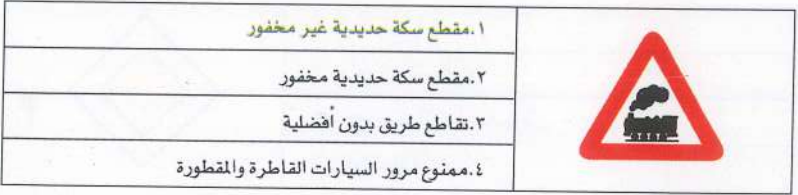 ١.مقطع سكة حديدية غير مخفور
٢.مقطع سكة حديدية مخفور
٣.تقاطع طريق بدون أفضلية
٤.ممنوع مرور السيارات القاطرة والمقطورة